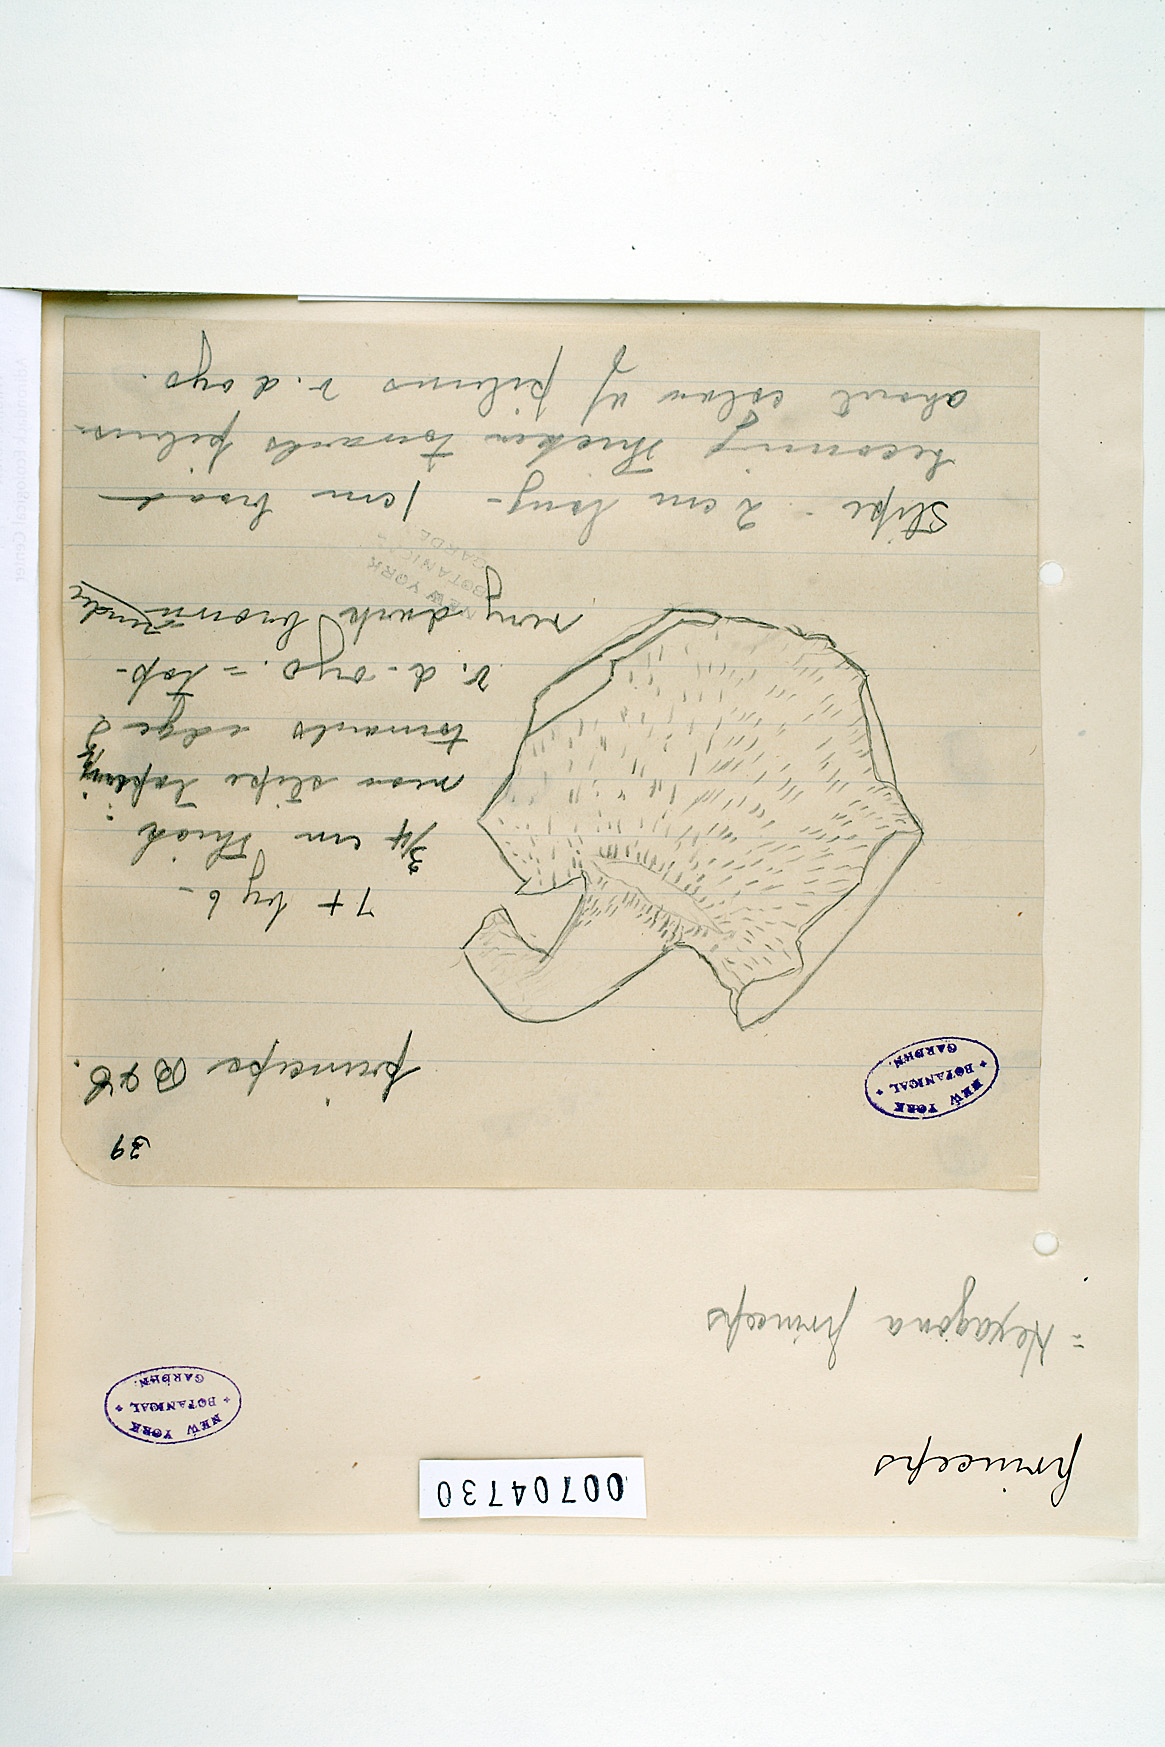 00704730
princeps
NEW YORK
BOTANICAL
GARDEN.
= Hexagona princeps
39
princeps B & C.
NEW YORK
BOTANICAL
GARDEN.
7+ by 6 -
3/4 cm thick
near stipe tapering
towards edge
v. d. oyo. = top -
very dark brown under
NEW YORK
BOTANIC
GARDE
Stipe - 2 cm long - 1 cm broad
becoming thicker towards pileus
about colour of pileus v. d oyo.